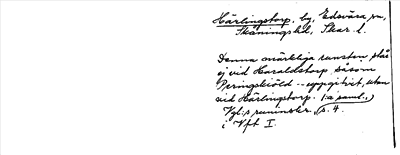 Härlingstorp. by, Edsvära sn,
Skånings hd, Skar. l.
Denna märkliga runsten står
ej vid Haraldstorp, såsom
Peringskiöld -- uppgifvit, utan
vid Härlingstorp. 1:a saml.,
Vgl:s runinskr. p. 4.
i Vft I.